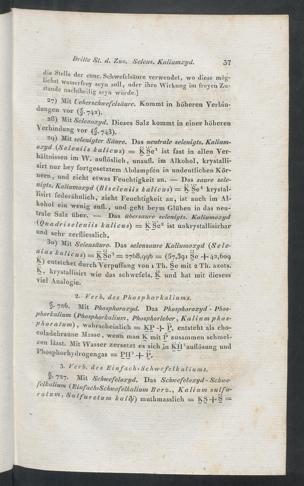 Dritte St. d. Zus. Selens. Kaliumoxyd. 37
die Stelle der conc. Schwefelsäure verwendet, wo diese mög-
lichst wasserfrey seyn soll, oder ihre Wirkung im freyen Zu-
stande nachtheilig seyn würde.]
27) Mit Ueberschwefelsäure. Kommt in höheren Verbin-
dungen vor (§. 742).
28) Mit Selenoxyd. Dieses Salz kommt in einer höheren
Verbindung vor (§. 743).
29) Mit selenigter Säure. Das neutrale selenigts. Kalium-
oxyd (Seleniis kalicus) = K̇S̈e¹ ist fast in allen Ver-
hältnissen im W. auflöslich, unaufl. im Alkohol, krystalli-
sirt nur bey fortgesetztem Abdampfen in undeutlichen Kör-
nern, und zieht etwas Feuchtigkeit an. — Das saure sele-
nigts. Kaliumoxyd (Biseleniis kalicus) = K̇S̈e² krystal-
lisirt federähnlich, zieht Feuchtigkeit an, ist auch im Al-
kohol ein wenig aufl., und geht beym Glühen in das neu-
trale Salz über. — Das übersaure selenigts. Kaliumoxyd
(Quadriseleniis kalicus) = K̇S̈e⁴ ist unkrystallisirbar
und sehr zerfliesslich.
30) Mit Selensäure. Das selensaure Kaliumoxyd (Sele-
nias kalicus) =
K) entsteht durch Verpuffung von 1 Th. Se mit 2 Th. azots.
K, krystallisirt wie das schwefels. K und hat mit diesem
viel Analogie.
2. Verb. des Phosphorkaliums.
§. 726. Mit Phosphoroxyd. Das Phosphoroxyd-Phos-
phorkalium (Phosphorkalium, Phosphorleber, Kalium phos-
phoratum), wahrscheinlich = KP + P, entsteht als cho-
coladebraune Masse, wenn man K mit P zusammen schmel-
zen lässt. Mit Wasser zersetzt es sich in auflösung und
Phosphorhydrogengas =
3. Verb. des Einfach-Schwefelkaliums.
§. 727. Mit Schwefeloxyd. Das Schwefeloxyd-Schwe-
felkalium (Einfach-Schwefelkalium Berz., Kalium sulfu-
ratum, Sulfuretum kalii) muthmasslich = KS + S =